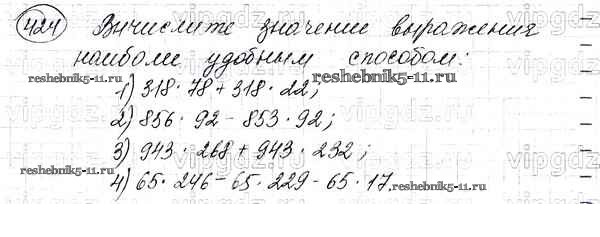 424 Вычислите значение выражения
наиболее удобным способом:
1) 318 · 78 + 318 · 22;
2) 856 · 92 - 853 · 92;
3) 943 · 268 + 943 · 232;
4) 65 · 246 - 65 · 229 - 65 · 17.
reshebnik5-11.ru
reshebnik5-11.ru
reshebnik5-11.ru
reshebnik5-11.ru
vipgdz